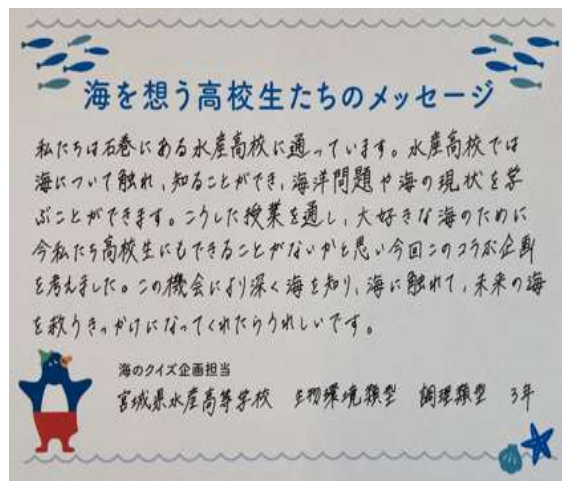 海を想う高校生たちのメッセージ
私たちは石巻にある水産高校に通っています。水産高校では
海について触れ、知ることができ、海洋問題や海の現状を学
ぶことができます。こうした授業を通し、大好きな海のために
今私たち高校生にもできることがないかと思い今回このコラボ企画
を考えました。この機会により深く海を知り、海に触れて、未来の海
を救うきっかけになってくれたらうれしいです。
海のクイズ企画担当
宮城県水産高等学校 生物環境類型 調理類型 3年